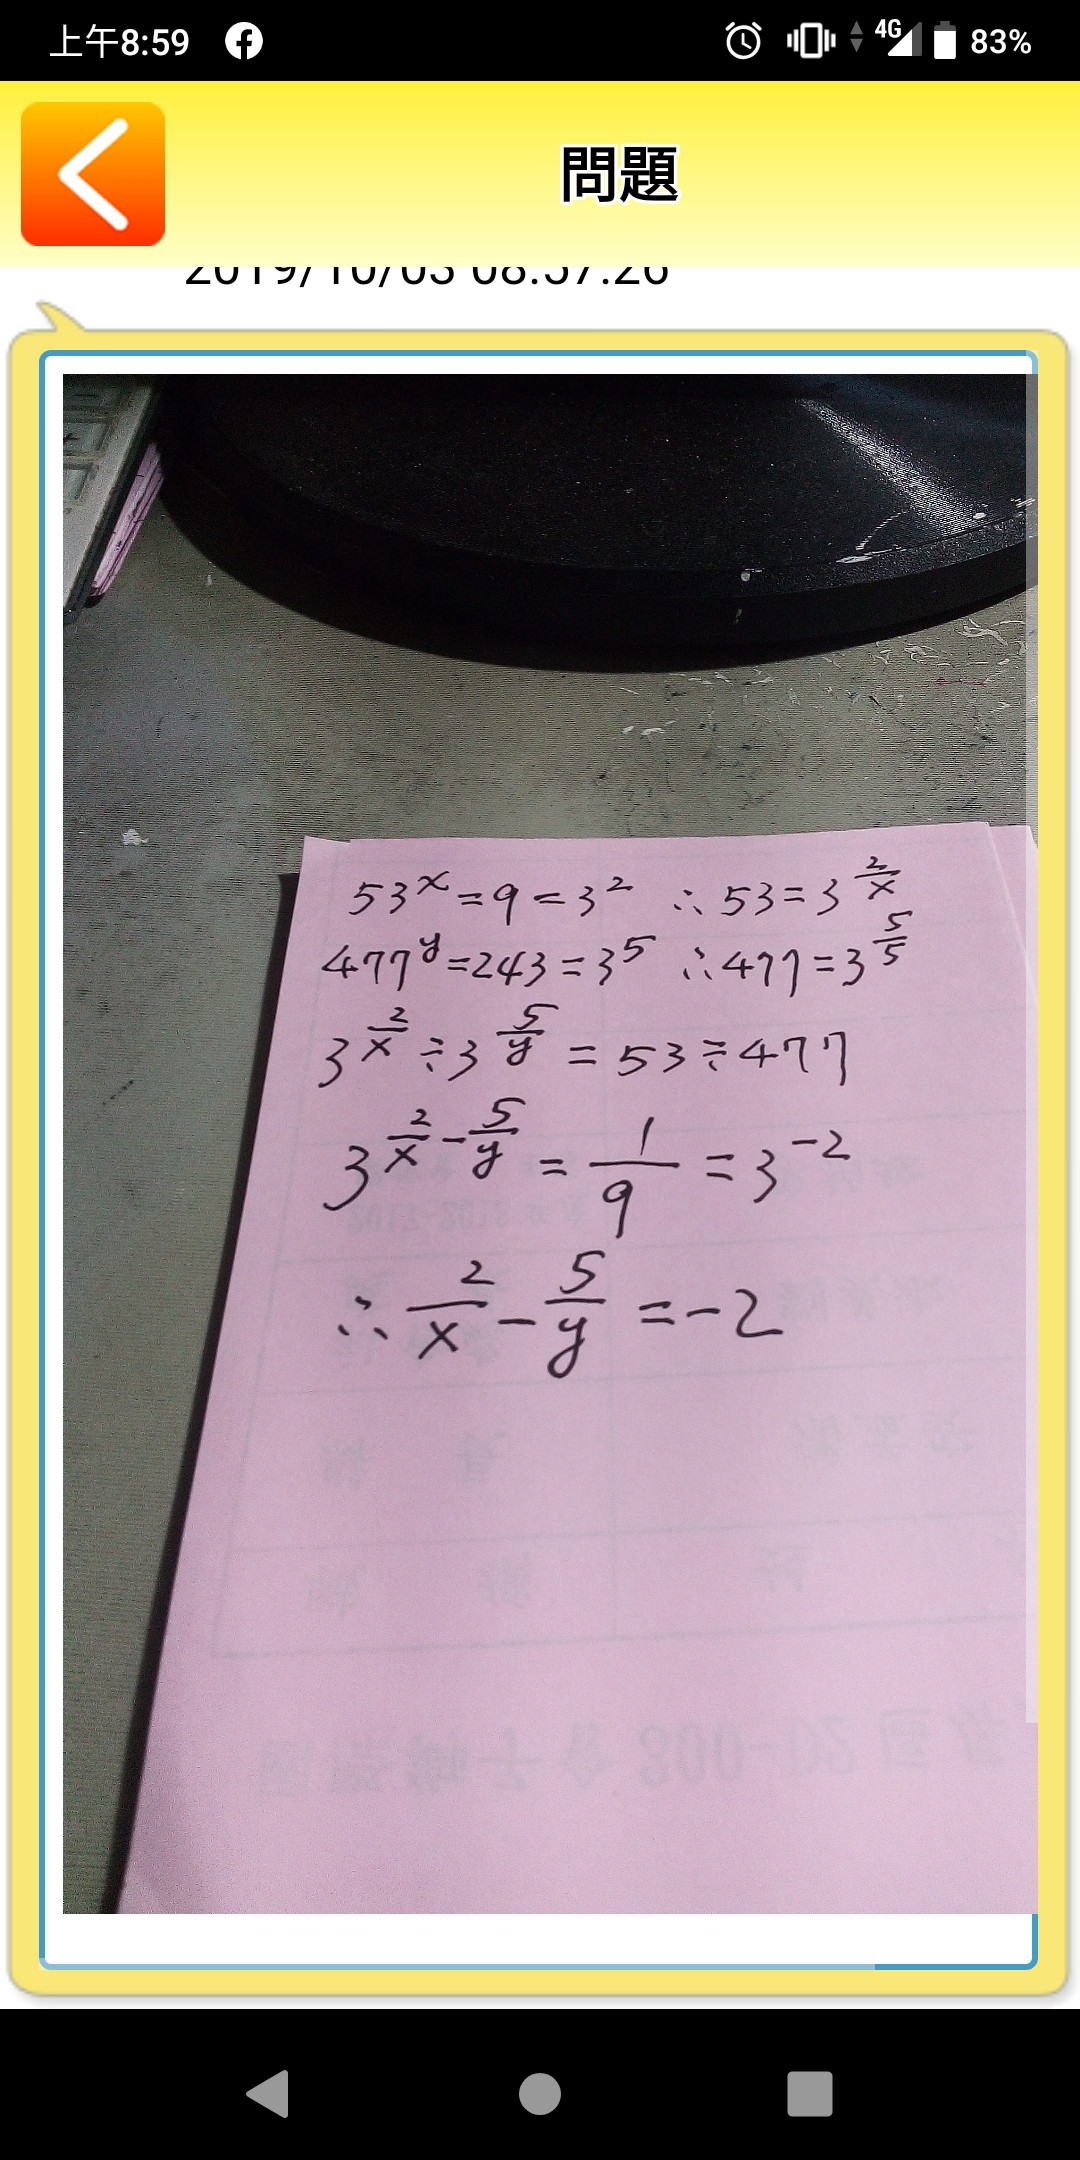 上午8:59 4G 83%
問題
2019/10/03 08:57:26
53^x = 9 = 3^2 ∴ 53 = 3^(2/x)
477^y = 243 = 3^5 ∴ 477 = 3^(5/5)
3^(2/x) ÷ 3^(5/y) = 53 ÷ 477
3^(2/x - 5/y) = 1/9 = 3^-2
∴ 2/x - 5/y = -2